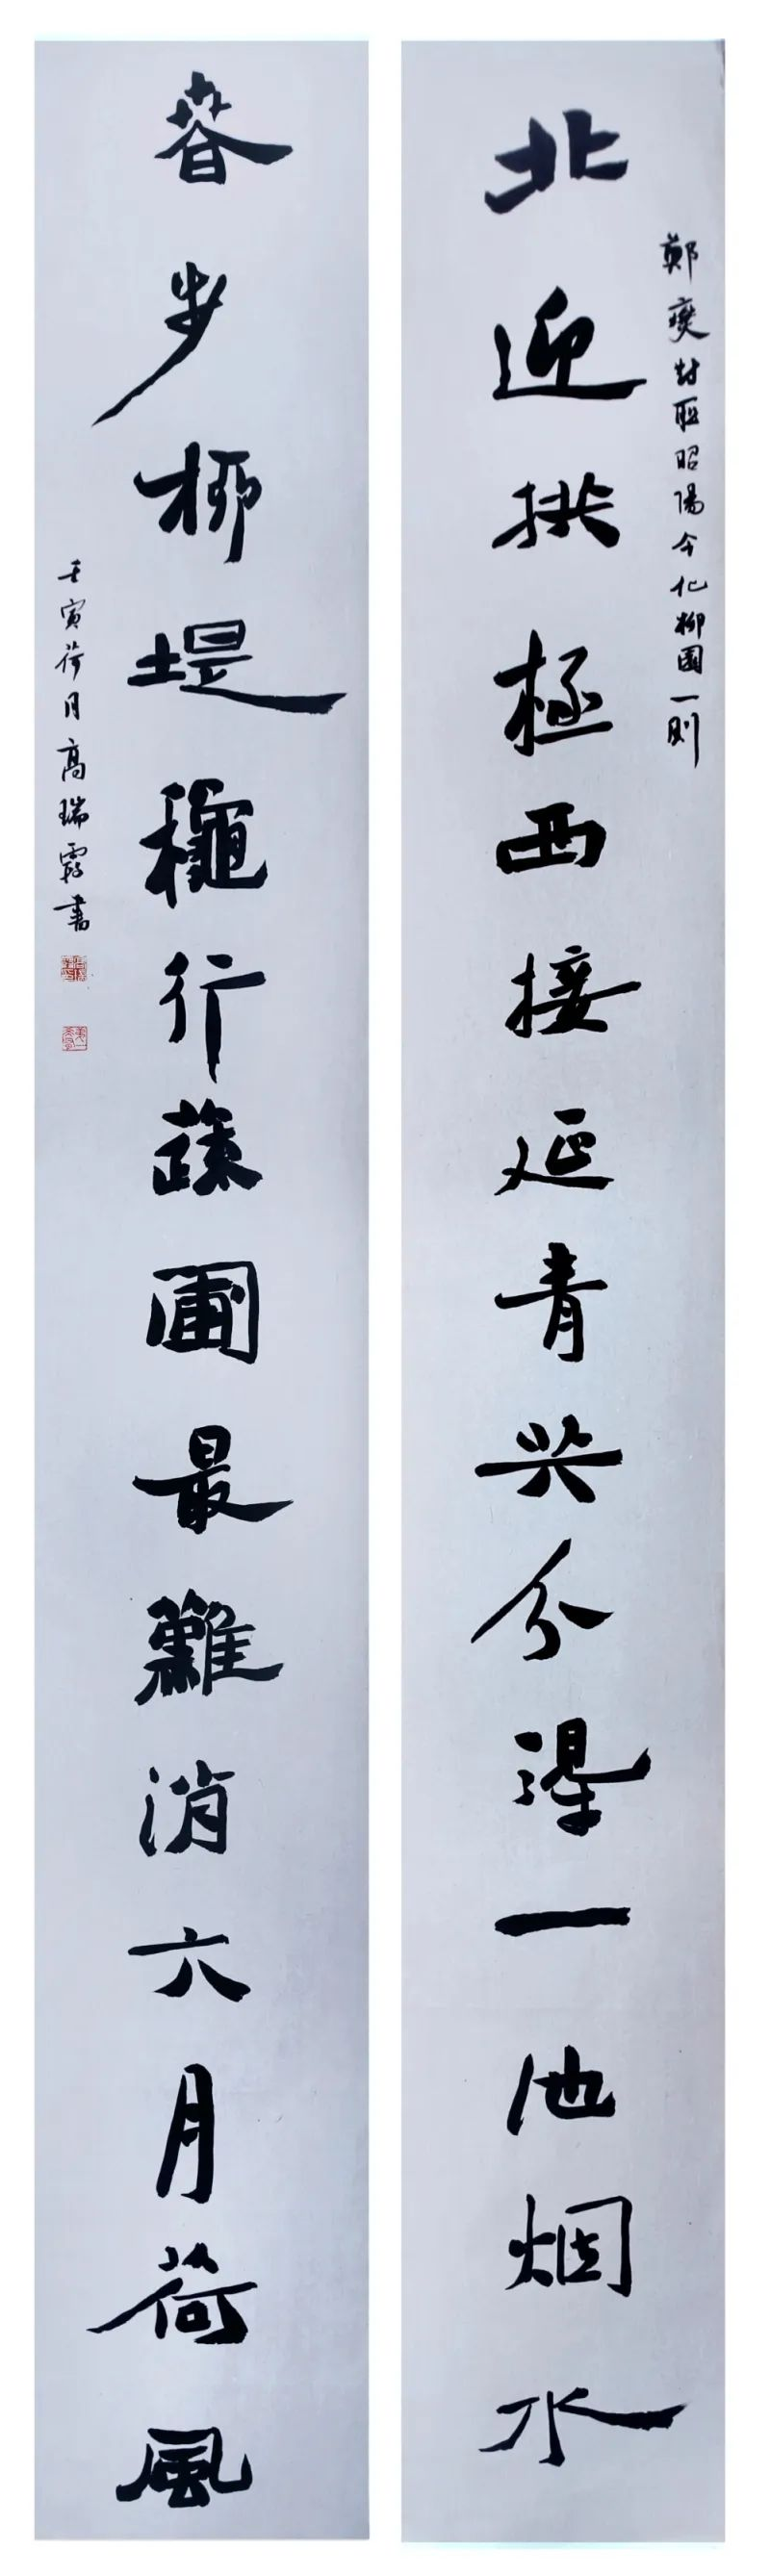 鄭燮對聯昭陽今化柳園一則
北迎拱極西接延青共分得一池烟水
春步柳堤龝行蔬圃最難消六月荷風
壬寅荷月高瑞霞書